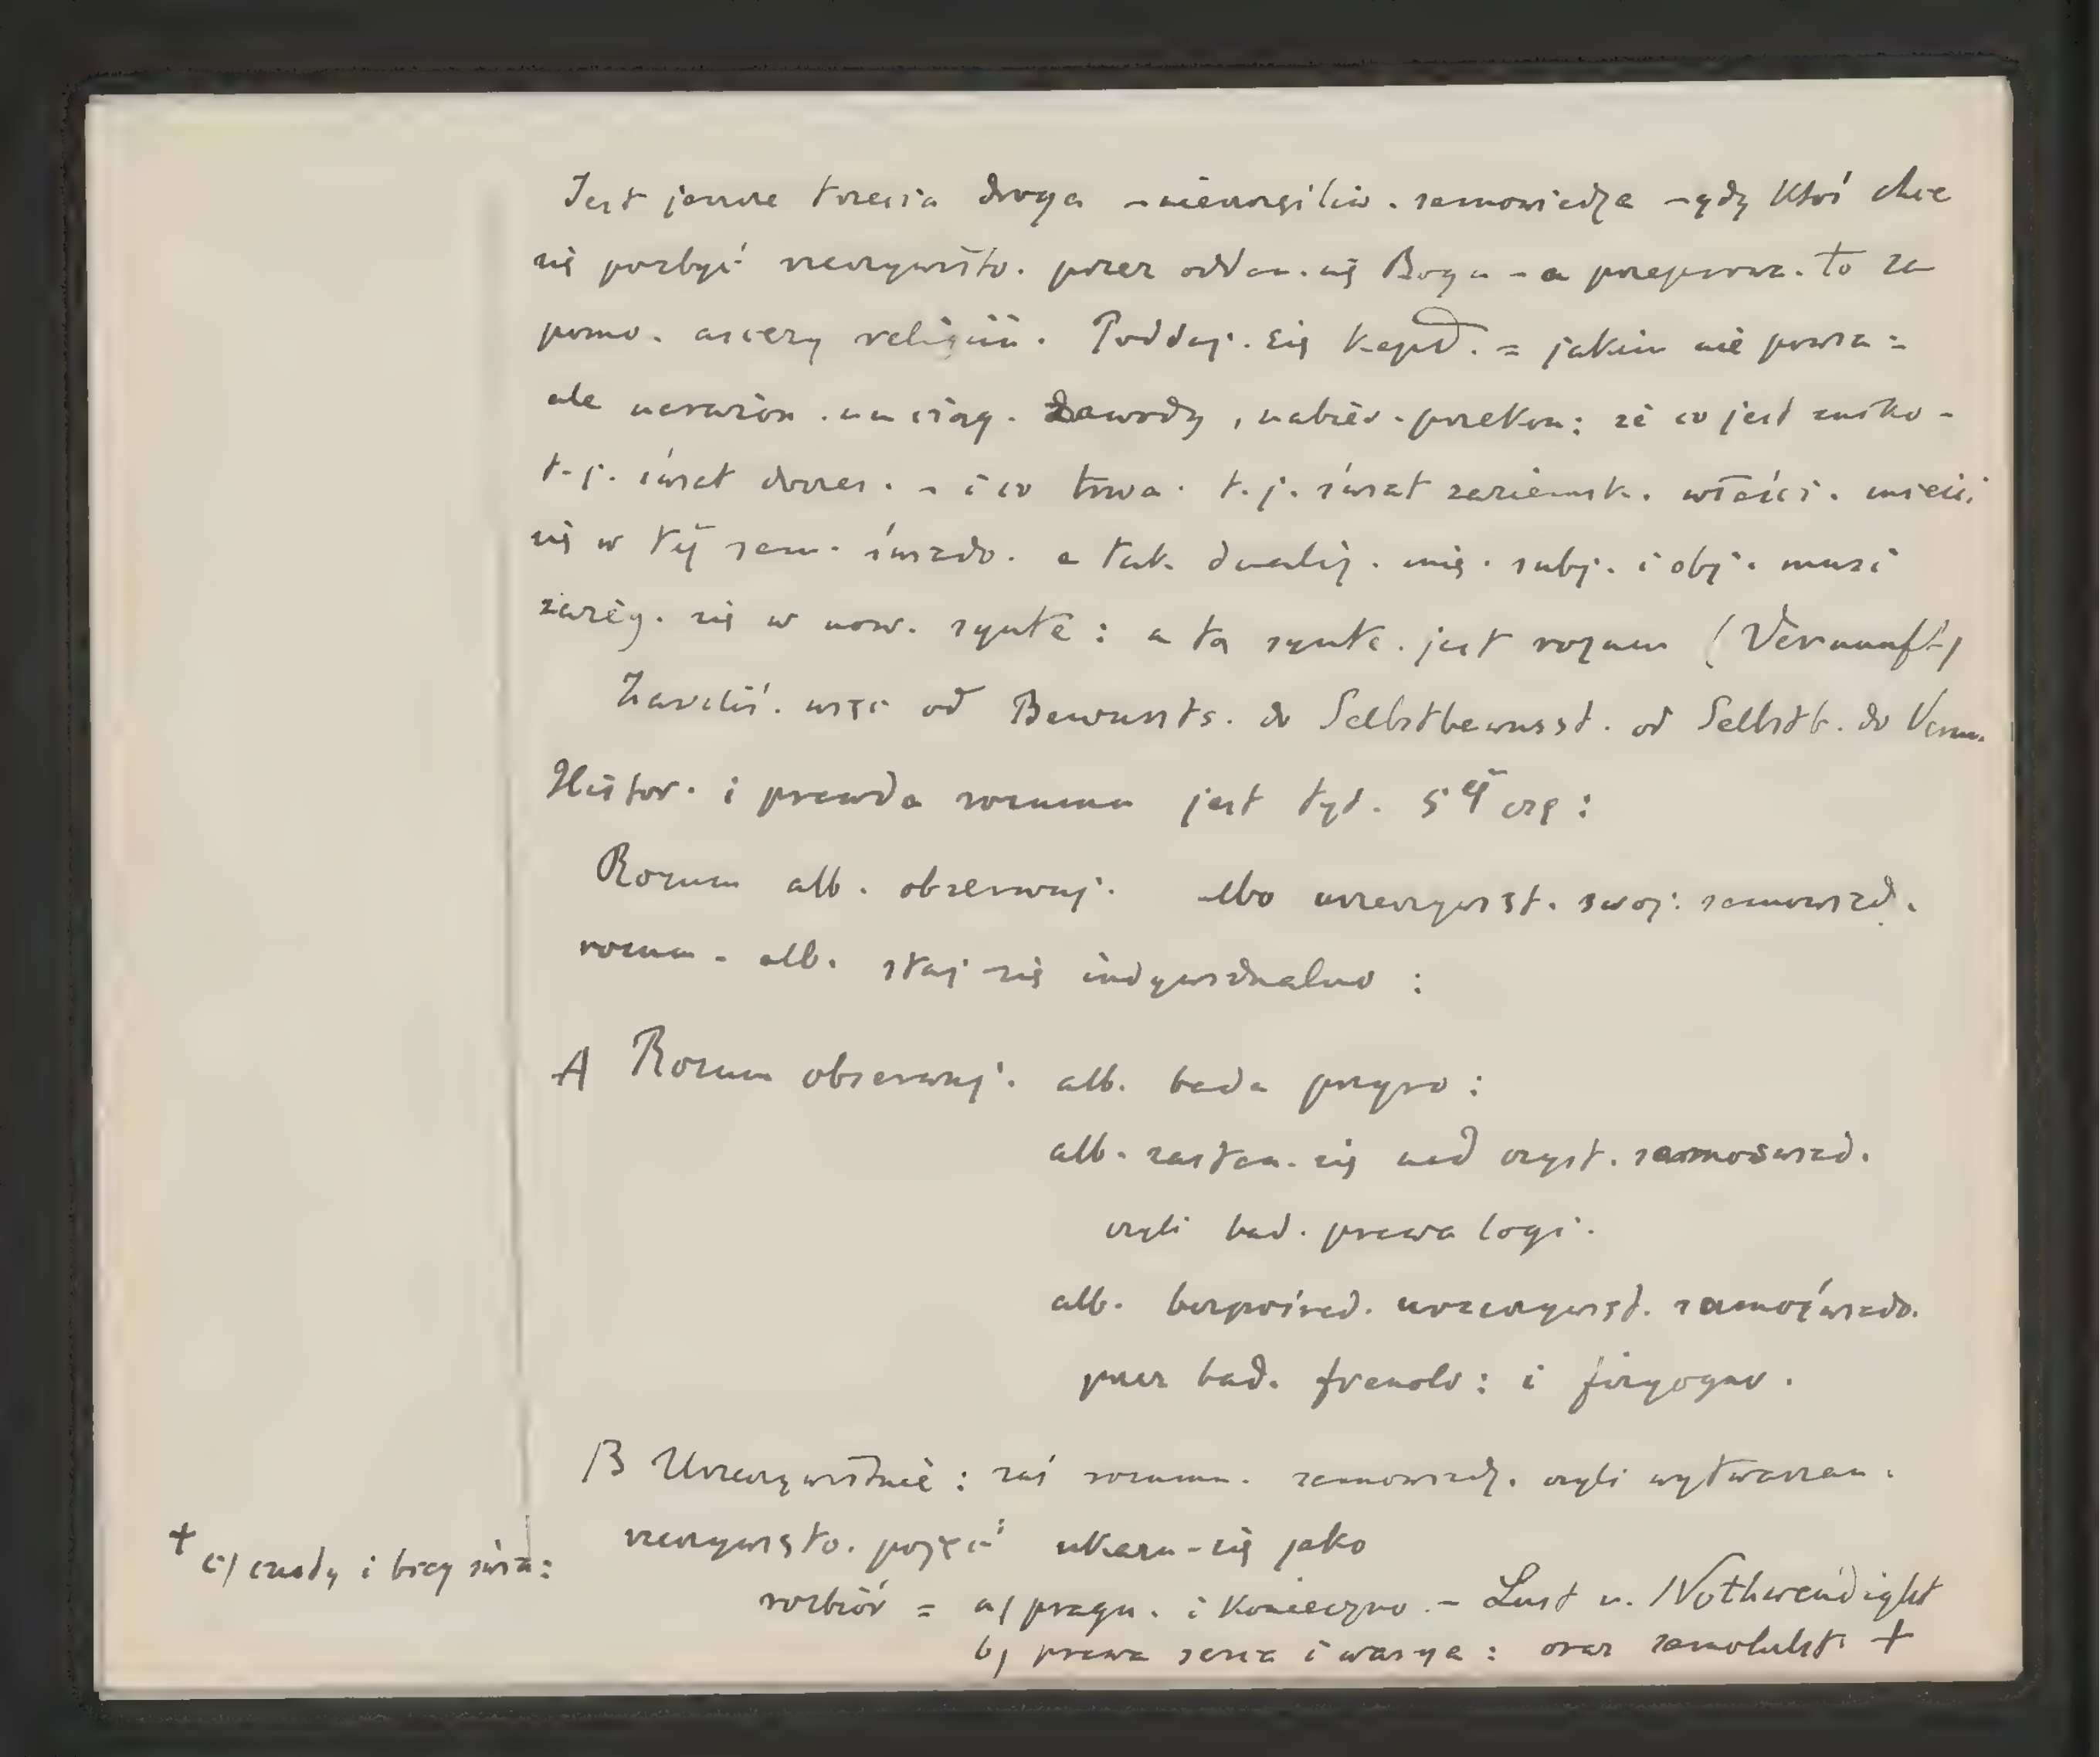 Jest jeszcze trzecia droga – nieszczęśliw. samowiedza – gdy ktoś chce
się pozbyć rzeczywisto. przez oddan. się Bogu – a przeprowa. to za
pomo. ascezy religiii. Poddaj. się kapł. = jakim nie powsta =
ale narażon. na ciąg. zawody, nabier. przekon: że co jest zniko –
t.j. świat docześ. – i co trwa. t.j. świat zaziemsk. właści. mieści
się w téj sam. świado. a tak. dualiz. mię. subj. i obj. musi
się w now. synte: a ta synte. jest rozum (Vernunft)
więc od Bewussts. do Selbstbewusst. od Selbstb. do Vern.
Histor. i prawda rozumu jest tyt. 5 éj czę:
Rozum alb. obserwuj. albo urzeczywist. swoj: samowied.
rozum. alb. staj się indywidualno:
A Rozum obserwuj. alb. bada przyro:
alb. zastan. się nad czyst. samoświad.
czyli bad. prawa logi.
alb. bezpośred. urzeczywist. samoświado.
przez bad. frenolo: i fizyogno.
B Urzeczywistnie: zaś rozumn. samowiedz. czyli wytwarzan.
rzeczywisto. pojęć ukazu – się jako
rozbiór = a) pragn. i konieczno. – Lust u. Nothwendigkt
b) prawa serca i : oraz samolubst. +
+ c) cnoty i biegu świa: